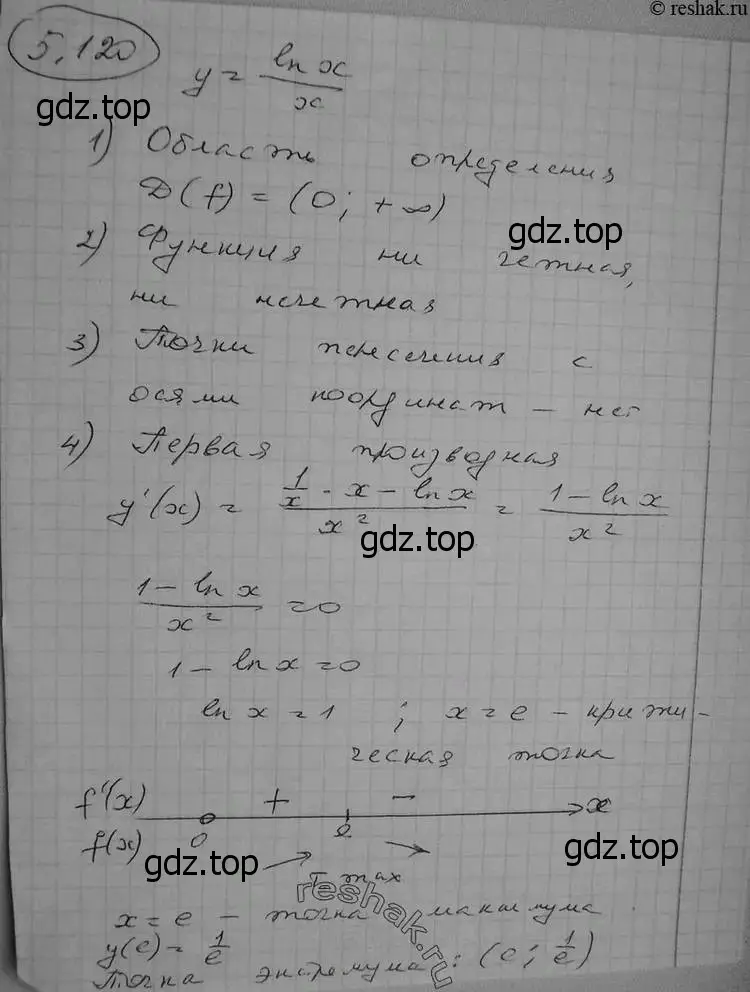 © reshak.ru
5.120
y = ln x / x
gdz.top
1) Область определения
D(f) = (0; +∞)
gdz.top
2) Функция ни четная,
ни нечетная
3) Точки пересечения с
осями координат – нет
4) Первая производная
y'(x) = (1/x · x – ln x) / x² = (1 – ln x) / x²
gdz.top
(1 – ln x) / x² = 0
1 – ln x = 0
ln x = 1 ; x = e – крити-
ческая точка
f'(x) + – x
f(x) 0 e
gdz.top
т. max
reshak.ru
x = e – точка максимума.
y(e) = 1/e
gdz.top
Точка экстремума: (e; 1/e)